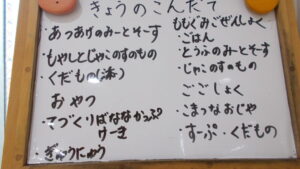 きょうのこんだて
・あつあげのみーとそーす
・もやしとじゃこのすのもの
・くだもの
おやつ
・てづくりばななかっぷ
けーき
・ぎゅうにゅう
ももぐみごぜんしょく
・ごはん
・とうふのみーとそーす
・じゃこのすのもの
ごごしょく
・こまつなおじや
・すーぷ・くだもの